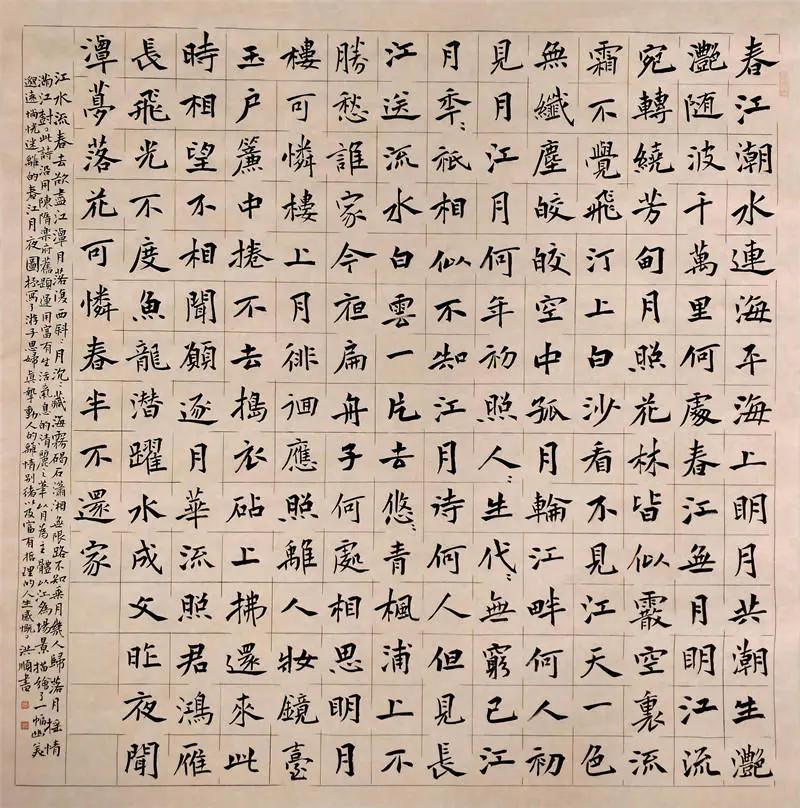 春江潮水連海平海上明月共潮生灔
灔随波千萬里何處春江無月明江流
宛轉繞芳甸月照花林皆似霰空裏流
霜不覺飛汀上白沙看不見江天一色
無纖塵皎皎空中孤月輪江畔何人初
見月江月何年初照人〻生代〻無窮已江
月年〻祇相似不知江月诗何人但見長
江送流水白雲一片去悠〻青楓浦上不
勝愁誰家今夜扁舟子何處相思明月
樓可憐樓上月徘徊應照離人妝鏡臺
玉户簾中捲不去搗衣砧上拂還來此
時相望不相聞願逐月華流照君鴻雁
長飛光不度魚龍潜躍水成文昨夜聞
潭夢落花可憐春半不還家
江水流春去欲盡江潭月落復西斜〻月沉〻藏海霧碣石瀟湘無限路不知乘月幾人歸落月摇情
滿江樹。此詩沿用陳隋樂府舊題運用富有生活氣息的清麗之筆以月為主體以江為場景描繪了一幅幽美
邈遠惝恍迷離的春江月夜圖抒寫了游子思婦真摯動人的離情别緒以及富有哲理的人生感慨。洪順書